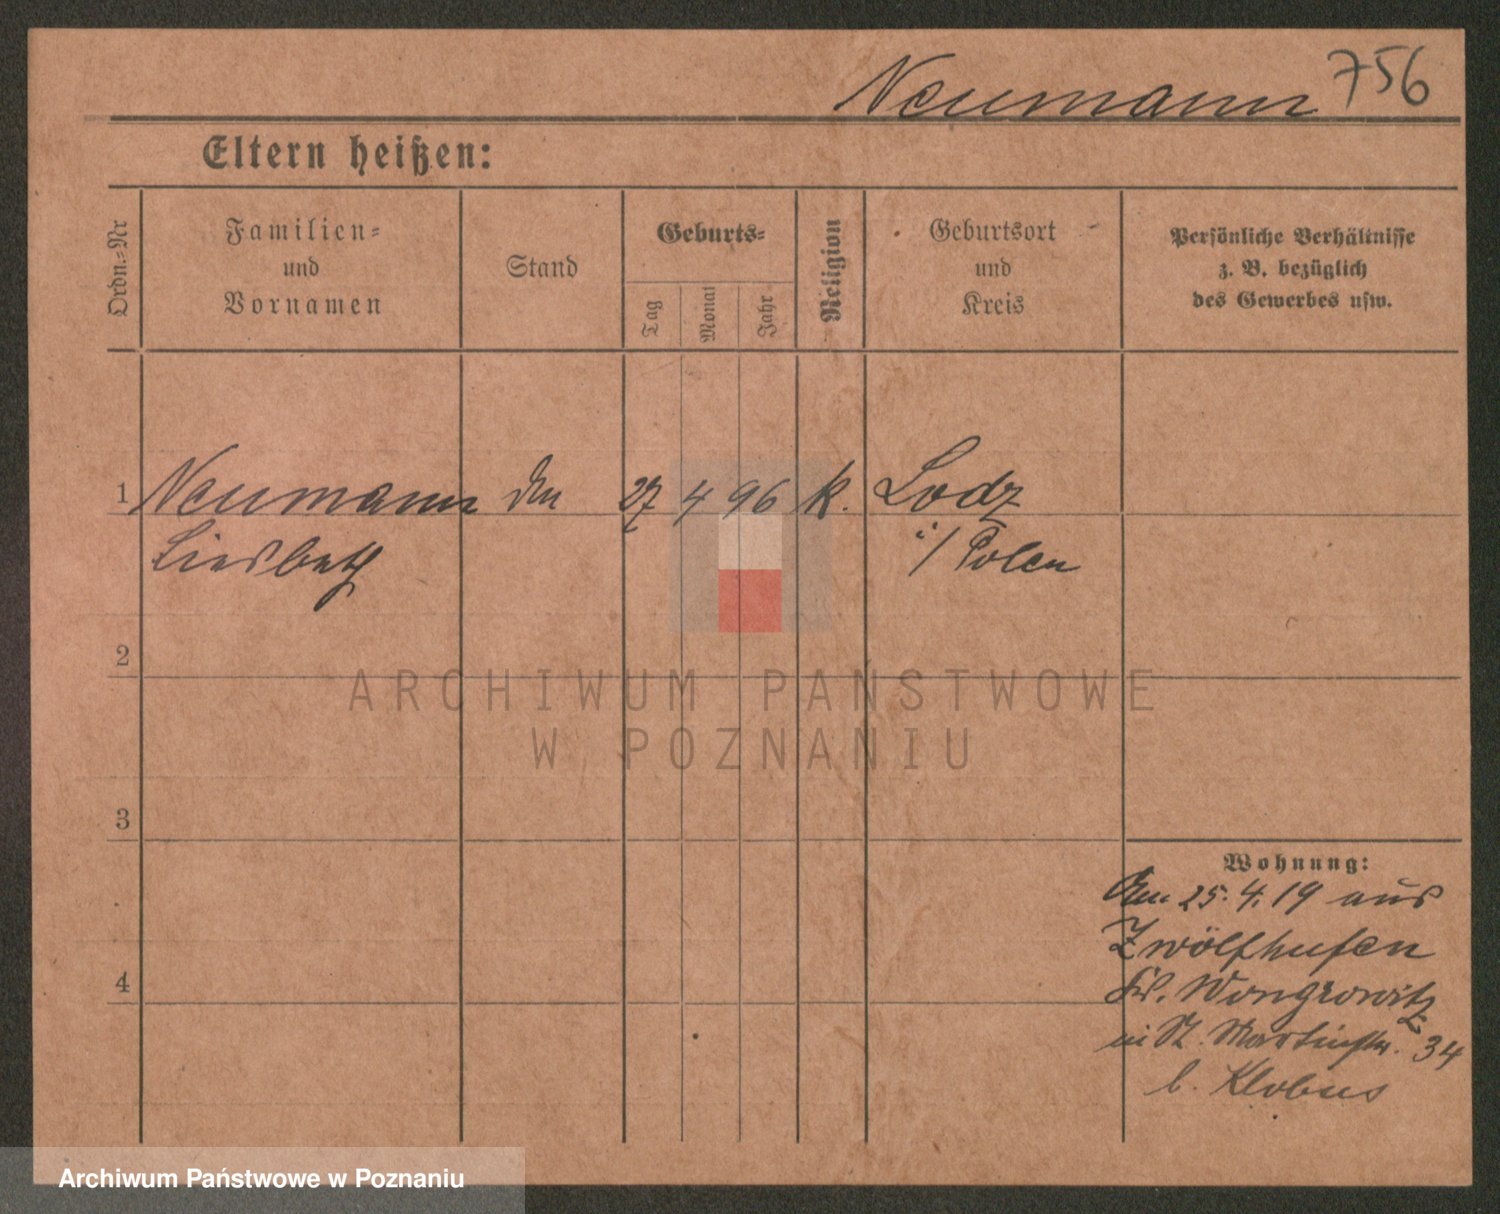 Neumann 756
Eltern heißen:
Ordn.-Nr
Familien-
und
Vornamen
Stand
Geburts-
Tag
Monat
Jahr
Religion
Geburtsort
und
Kreis
Persönliche Verhältnisse
z. B. bezüglich
des Gewerbes usw.
1 Neumann 27 4 96 k. Lodz
Liesbeth i/ Polen
2
3
4
Wohnung:
Am 25.4.19 aus
Zwölfhufen
Kr. Wongrowitz
St. Martinstr. 34
b. Klobus
ARCHIWUM PAŃSTWOWE
W POZNANIU
Archiwum Państwowe w Poznaniu